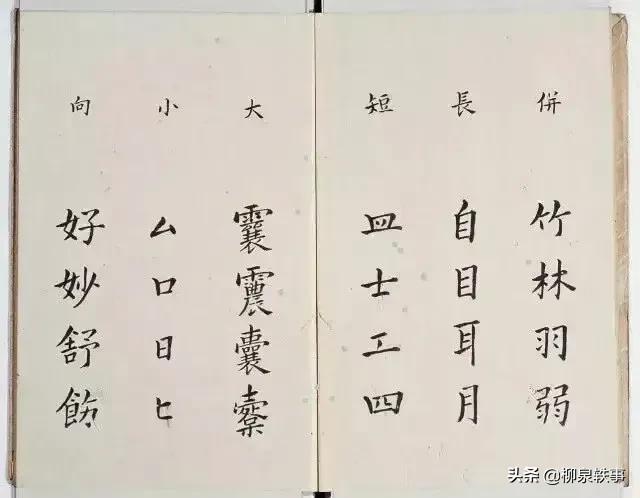 併
竹林羽弱
長
自目耳月
短
皿士工四
大
囊
小
厶口日匕
向
好妙舒飭
头条 @柳泉轶事